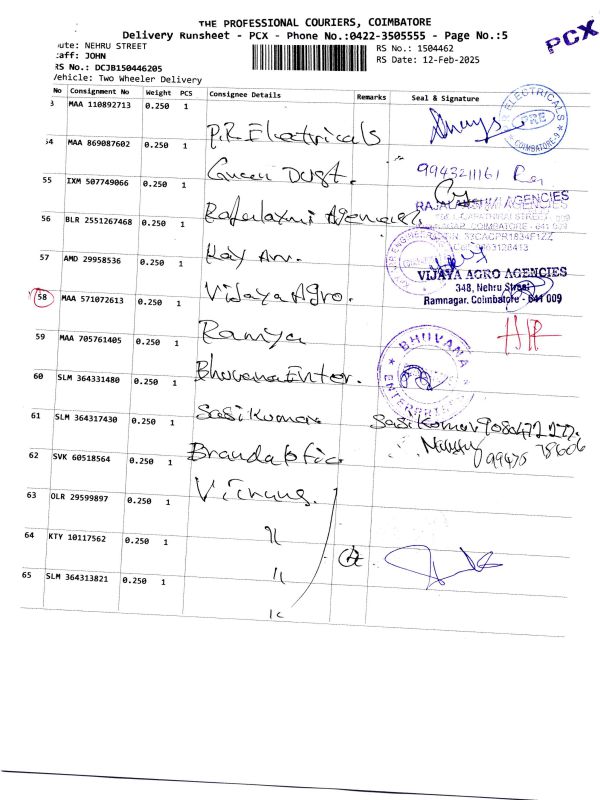 THE PROFESSIONAL COURIERS, COIMBATORE
Delivery Runsheet - PCX - Phone No.:0422-3505555 - Page No.:5
PCX
oute: NEHRU STREET
RS No.: 1504462
taff: JOHN
RS Date: 12-Feb-2025
RS No.: DCJB150446205
Vehicle: Two Wheeler Delivery
No Consignment No Weight PCS Consignee Details Remarks Seal & Signature
3 MAA 110892713 0.250 1 P.R. Electricals
ELECTRICALS
PRE
COIMBATORE-9
54 MAA 869087602 0.250 1 Green Dust. 9943211161
55 IXM 507749066 0.250 1 Rajalaxmi Agencies
RAJALAKSHMI AGENCIES
COIMBATORE - 641 009
56 BLR 2551267468 0.250 1 Kay Arr.
57 AMD 29958536 0.250 1 Vijaya Agro.
VIJAYA AGRO AGENCIES
348, Nehru Street
Ramnagar, Coimbatore - 641 009
58 MAA 571072613 0.250 1 Ramya
59 MAA 705761405 0.250 1 Bhuvana Enter.
BHUVANA
ENTERPRISES
60 SLM 364331480 0.250 1 Sasikumar
Sasikumar
61 SLM 364317430 0.250 1 Brandoptic
99475 78606
62 SVK 60518564 0.250 1
63 OLR 29599897 0.250 1 "
64 KTY 10117562 0.250 1 "
65 SLM 364313821 0.250 1 "